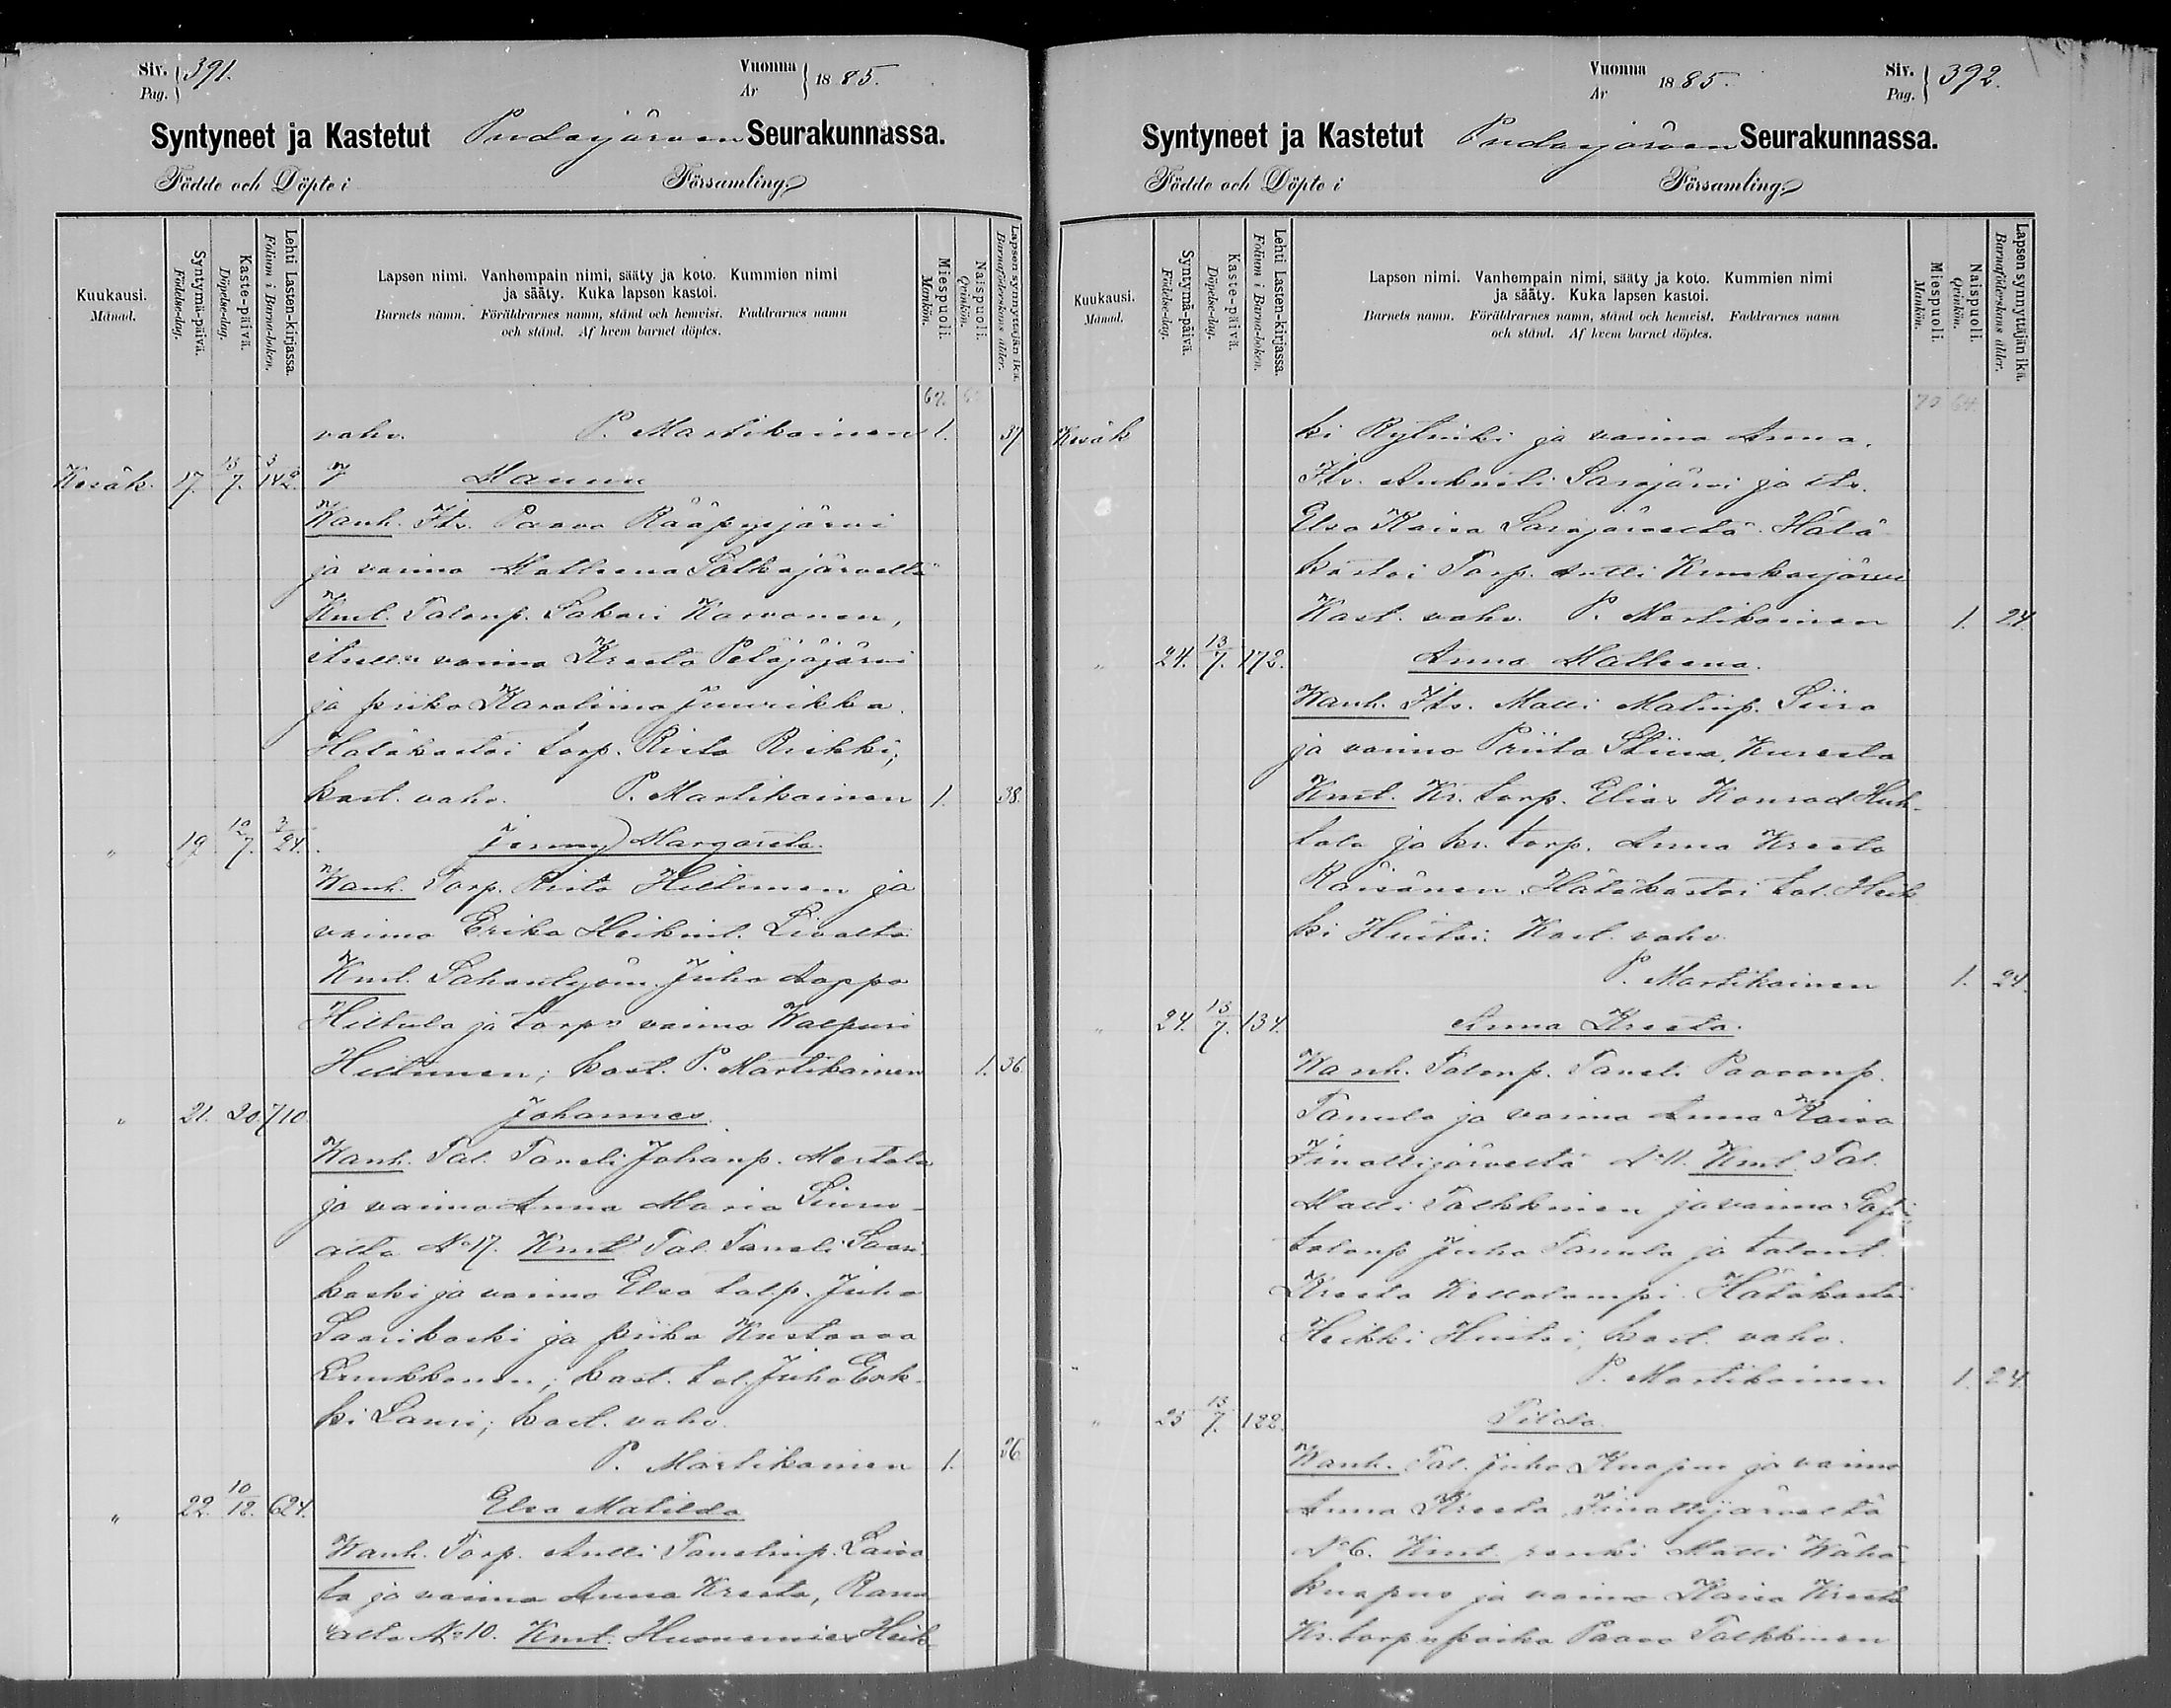 Siv. 391.
Pag.
Vuonna 1885.
Ar
Syntyneet ja Kastetut Pudasjärven Seurakunnassa.
Födde och Döpte i Församling
Kuukausi.
Månad.
Syntymä-päivä.
Födelse-dag.
Kaste-päivä.
Döpelse-dag.
Lehti Lasten-kirjassa.
Folium i Barna-boken.
Lapsen nimi. Vanhempain nimi, sääty ja koto. Kummien nimi
ja sääty. Kuka lapsen kastoi.
Barnets namn. Föräldrarnes namn, stånd och hemvist. Faddrarnes namn
och stånd. Af hvem barnet döptes.
Miespuoli.
Mankön.
Naispuoli.
Qvinkön.
Lapsen synnyttäjän ikä.
Barnaföderskans ålder.
vahv. P. Martikainen 1. 37
Kesäk. 17. 13/7. 142. Hannu
Wanh. Its. Paavo Rääpysjärvi
ja vaimo Matleena Sotkajärveltä
Kmt. Talonp. Sakari Karvonen,
vaimo Kreeta Petäjäjärvi
ja piika Karoliina Juurikka.
Hätäkastoi torp. Risto Riekki;
kast. vahv. P. Martikainen 1. 38.
" 19 10/7. 24. Jenny Margareta.
Wanh. Torp. Risto Hiltunen ja
vaimo Erika Heikint. Livolta
Kmt. Sahantyöm. Juho Aappo
Hiltula ja torp:n vaimo Walpuri
Hiltunen; kast. P. Martikainen 1. 36.
" 21. 20/7 10. Johannes.
Wanh. Tal. Taneli Johanp. Mertala
ja vaimo Anna Maria Siuru-
alta No 17. Kmt Tal. Taneli Saari-
koski ja vaimo Elsa tal.p. Juho
Saarikoski ja piika Kustaava
Lunkkonen; kast. tal. Juho Erk-
ki Lauri; kast. vahv.
P. Martikainen 1. 26
" 22. 10/12. 624. Elsa Matilda
Wanh. Torp. Antti Tanelinp. Laiva
la ja vaimo Anna Kreeta, Ranu
alta No 10. Kmt. Huonemies Heik
Vuonna 1885.
Ar
Siv. 392.
Pag.
Syntyneet ja Kastetut Pudasjärven Seurakunnassa.
Födde och Döpte i Församling
Kuukausi.
Månad.
Syntymä-päivä.
Födelse-dag.
Kaste-päivä.
Döpelse-dag.
Lehti Lasten-kirjassa.
Folium i Barna-boken.
Lapsen nimi. Vanhempain nimi, sääty ja koto. Kummien nimi
ja sääty. Kuka lapsen kastoi.
Barnets namn. Föräldrarnes namn, stånd och hemvist. Faddrarnes namn
och stånd. Af hvem barnet döptes.
Miespuoli.
Mankön.
Naispuoli.
Qvinkön.
Lapsen synnyttäjän ikä.
Barnaföderskans ålder.
70 64.
Kesäk ki Rytinki ja vaimo Anna.
Its. Aukusti Sarajärvi ja its.
Elsa Kaisa Sarajärveltä. Hätä
kastoi Torp. Antti Kuukasjärvi
Kast. vahv. P. Martikainen 1. 24.
" 24. 13/7. 172. Anna Matleena.
Wanh. Its. Matti Matinp. Siira
ja vaimo Priita Stiina, Kuresta
Kmt. Kr. torp. Elias Konrad Huh-
tala ja kr. torp. Anna Kreeta
Räisänen. Hätäkastoi tal. Heik
ki Huitsi. Kast. vahv.
P. Martikainen 1. 24.
" 24. 13/7. 134. Anna Kreeta.
Wanh. Talonp. Taneli Paavonp.
Tanula ja vaimo Anna Kaisa
Iinattijärveltä No 11. Kmt. Tal.
Matti Talkkinen ja vaimo
talonp Juho Tanula ja talont.
Kreeta Kellolampi. Hätäkastoi
Heikki Huitsi; kast. vahv.
P. Martikainen 1. 24.
" 25 13/7. 122. Tilda
Wanh. Tal. Juho Kuopus ja vaimo
Anna Kreeta, Iinattijärveltä
No 6. Kmt. renki Matti Wähä-
kuopus ja vaimo Kaisa Kreeta
Kr. torp:n poika Paavo Talkkinen